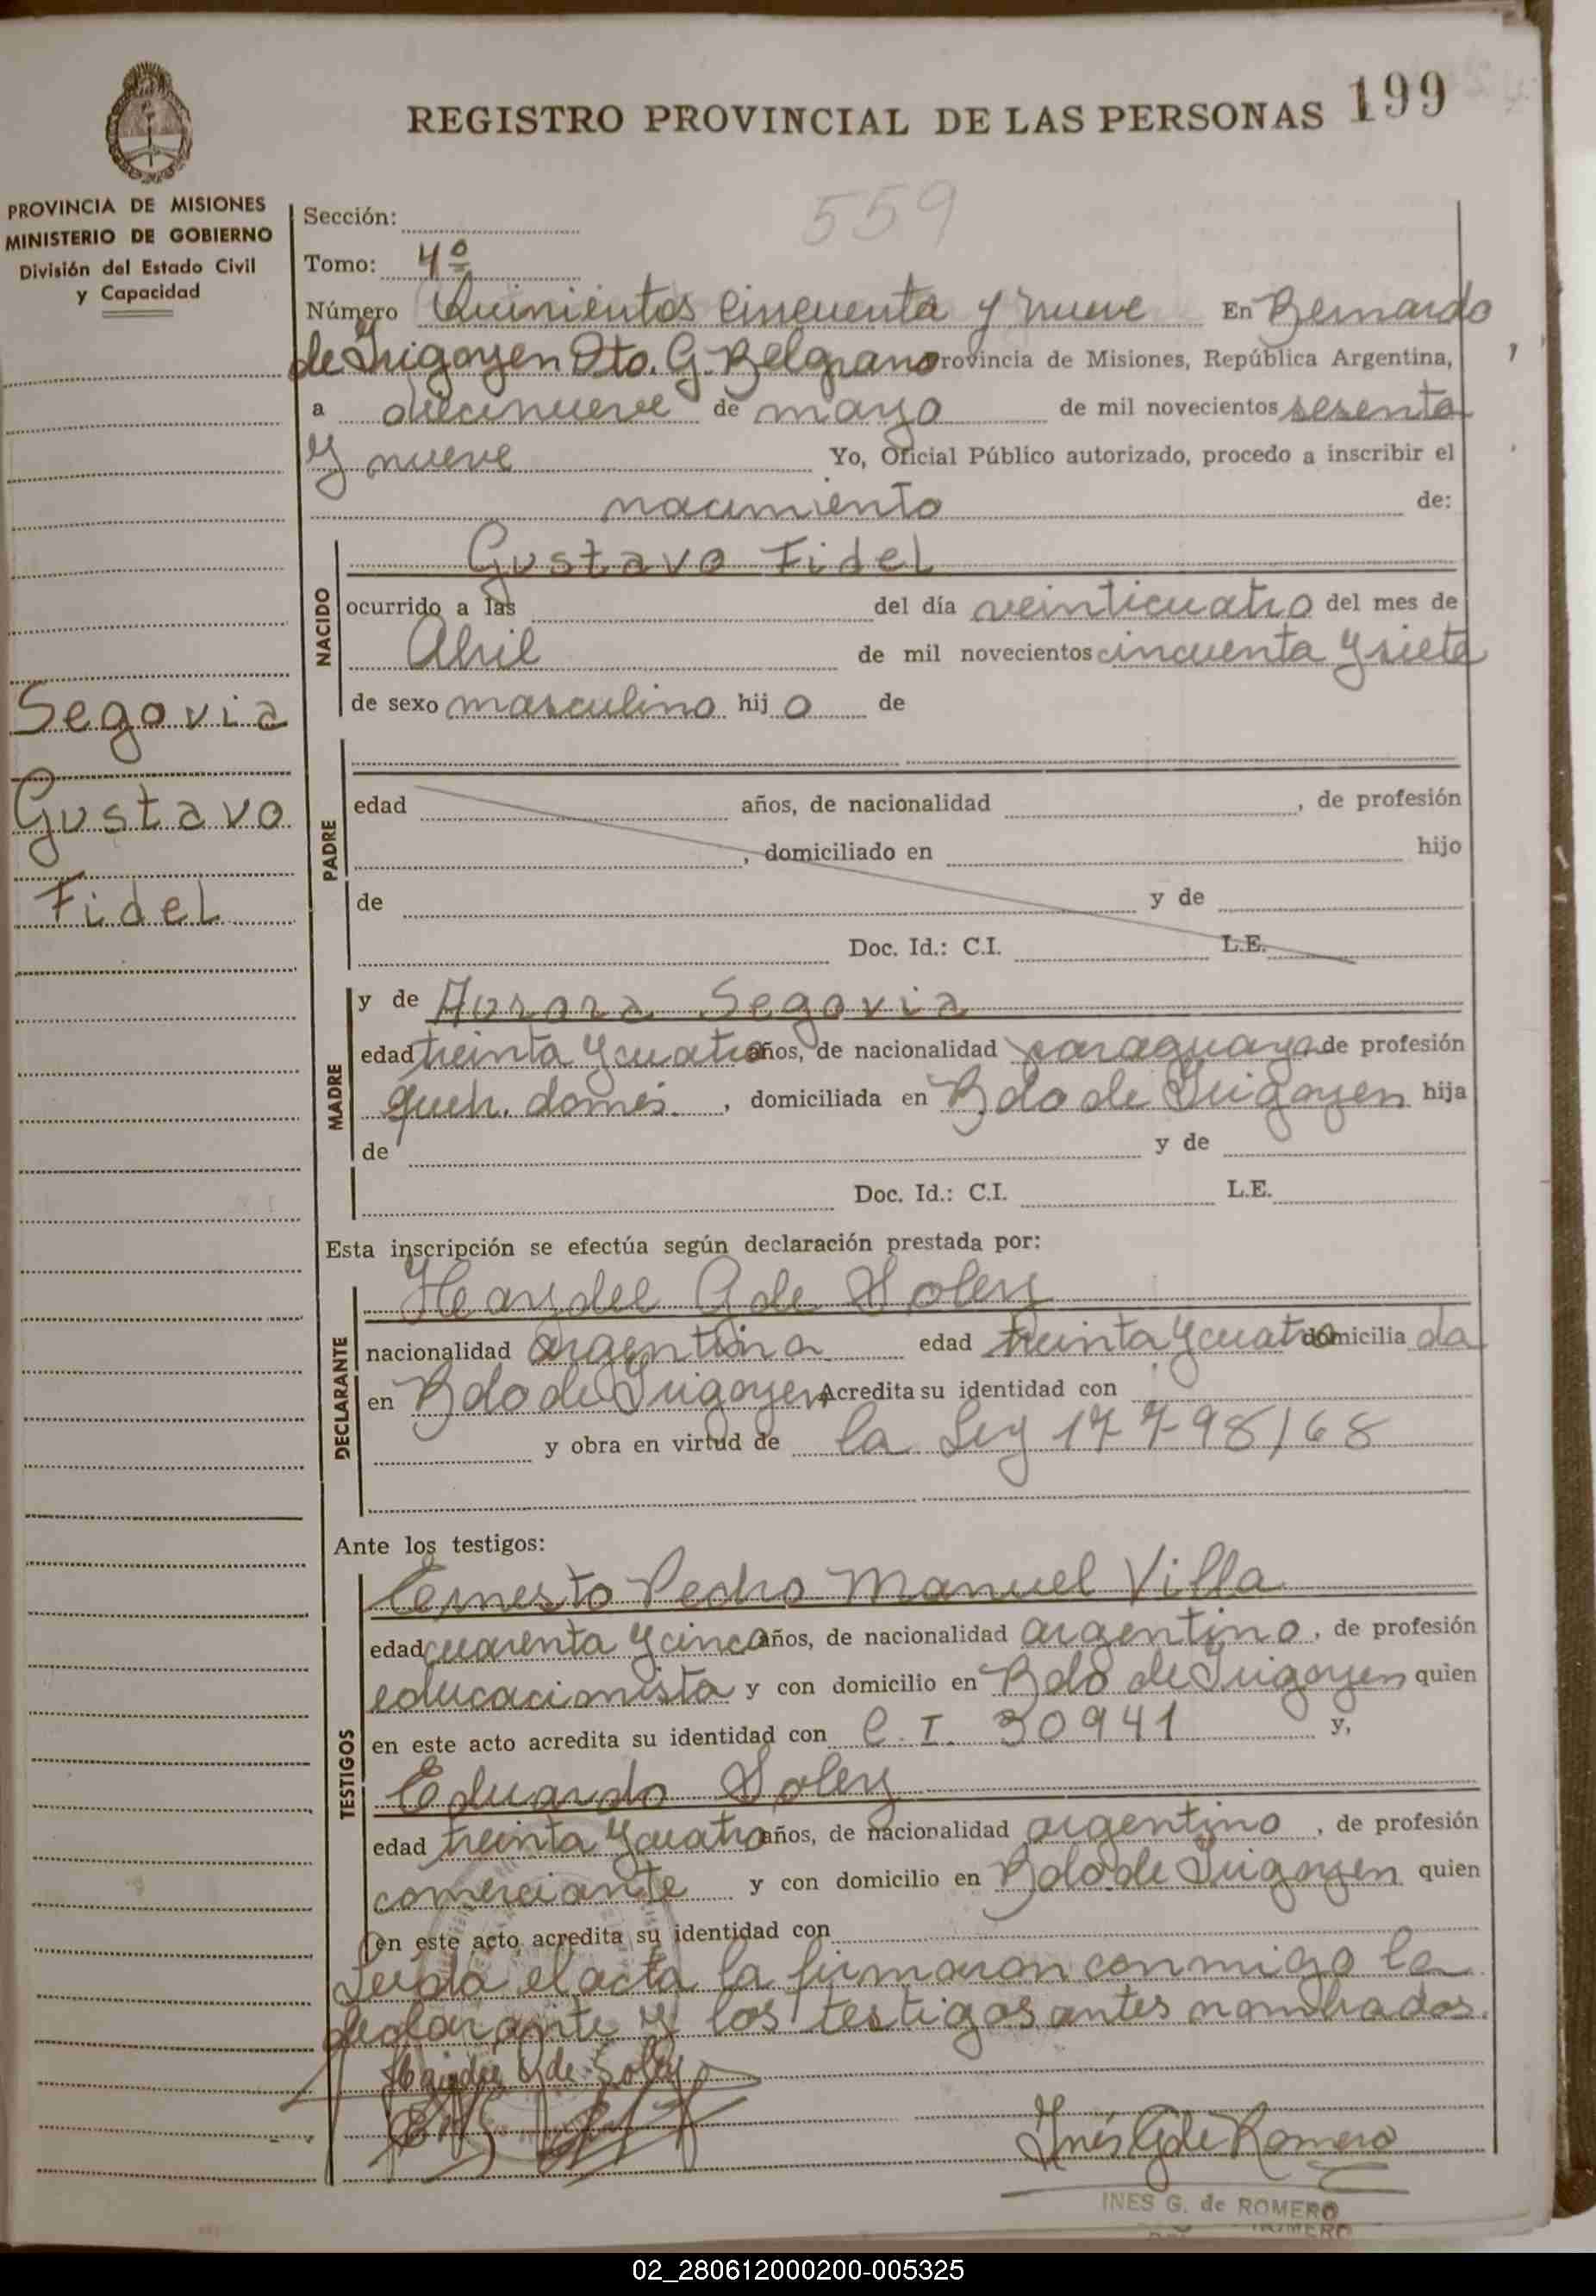 REGISTRO PROVINCIAL DE LAS PERSONAS 199
PROVINCIA DE MISIONES
MINISTERIO DE GOBIERNO
División del Estado Civil
y Capacidad
559
Sección:
Tomo: 4º
Número Quinientos cincuenta y nueve En Bernardo
de Irigoyen Dto. G. Belgrano Provincia de Misiones, República Argentina,
a diecinueve de mayo de mil novecientos sesenta
y nueve Yo, Oficial Público autorizado, procedo a inscribir el
nacimiento de:
NACIDO
Gustavo Fidel
ocurrido a las del día veinticuatro del mes de
Abril de mil novecientos cincuenta y siete
de sexo masculino hijo de
Segovia
Gustavo
Fidel
PADRE
edad años, de nacionalidad , de profesión
, domiciliado en hijo
de y de
Doc. Id.: C.I. L.E.
MADRE
y de Aurora Segovia
edad treinta y cuatro años, de nacionalidad paraguaya de profesión
queh. domés. , domiciliada en Bdo de Irigoyen hija
de y de
Doc. Id.: C.I. L.E.
Esta inscripción se efectúa según declaración prestada por:
DECLARANTE
Haydee G de Soley
nacionalidad argentina edad treinta y cuatro domicilia da
en Bdo de Irigoyen Acredita su identidad con
y obra en virtud de la Ley 17798/68
Ante los testigos:
TESTIGOS
Ernesto Pedro Manuel Villa
edad cuarenta y cinco años, de nacionalidad argentino, de profesión
educacionista y con domicilio en Bdo de Irigoyen quien
en este acto acredita su identidad con C. I. 30941 y,
Eduardo Soley
edad treinta y cuatro años, de nacionalidad argentino, de profesión
comerciante y con domicilio en Bdo de Irigoyen quien
en este acto acredita su identidad con
Leída el acta la firmaron conmigo la
declarante y los testigos antes nombrados.
Haydee G de Soley
Inés G de Romero
INES G. de ROMERO
02_280612000200-005325